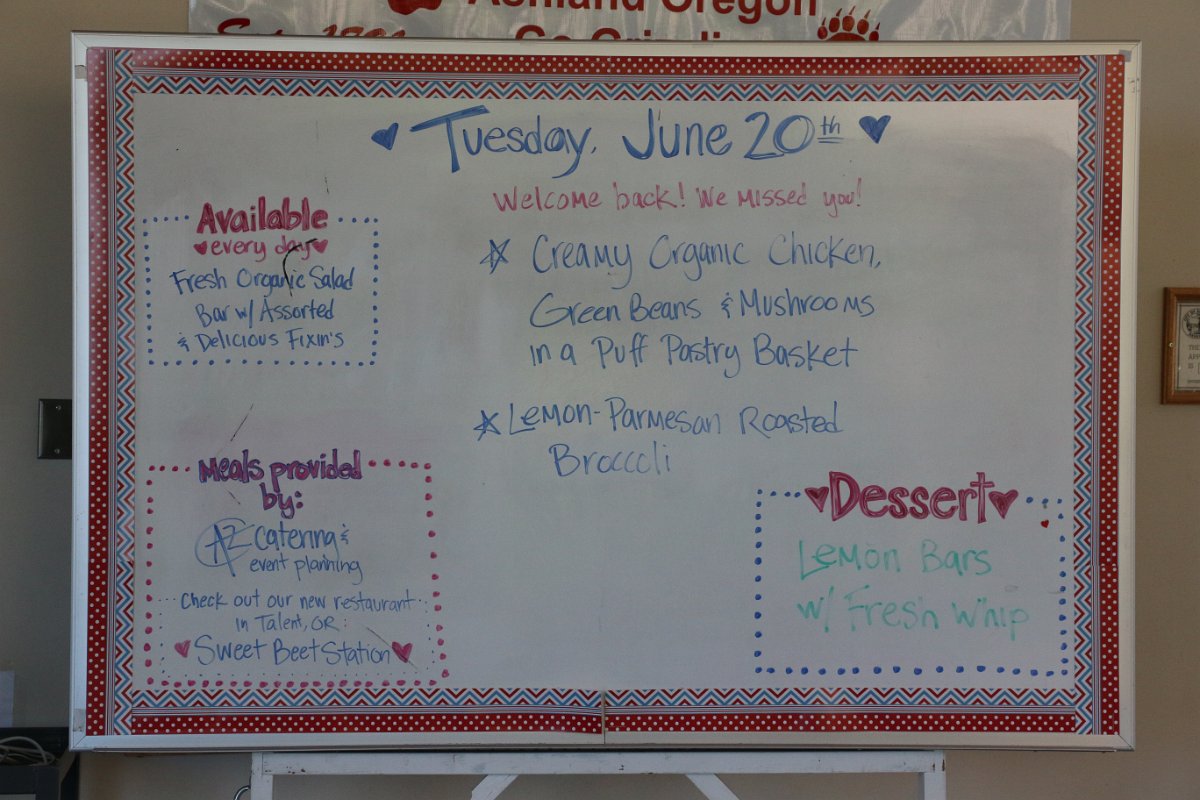 Ashland Oregon
Tuesday, June 20th
Welcome back! We missed you!
Available
every day
Fresh Organic Salad
Bar w/ Assorted
& Delicious Fixin's
Creamy Organic Chicken,
Green Beans & Mushrooms
in a Puff Pastry Basket
Lemon-Parmesan Roasted
Brocccli
Meals provided
by:
AZ Catering &
event planning
Check out our new restaurant
in Talent, OR:
Sweet Beet Station
Dessert
Lemon Bars
w/ Fresh Whip